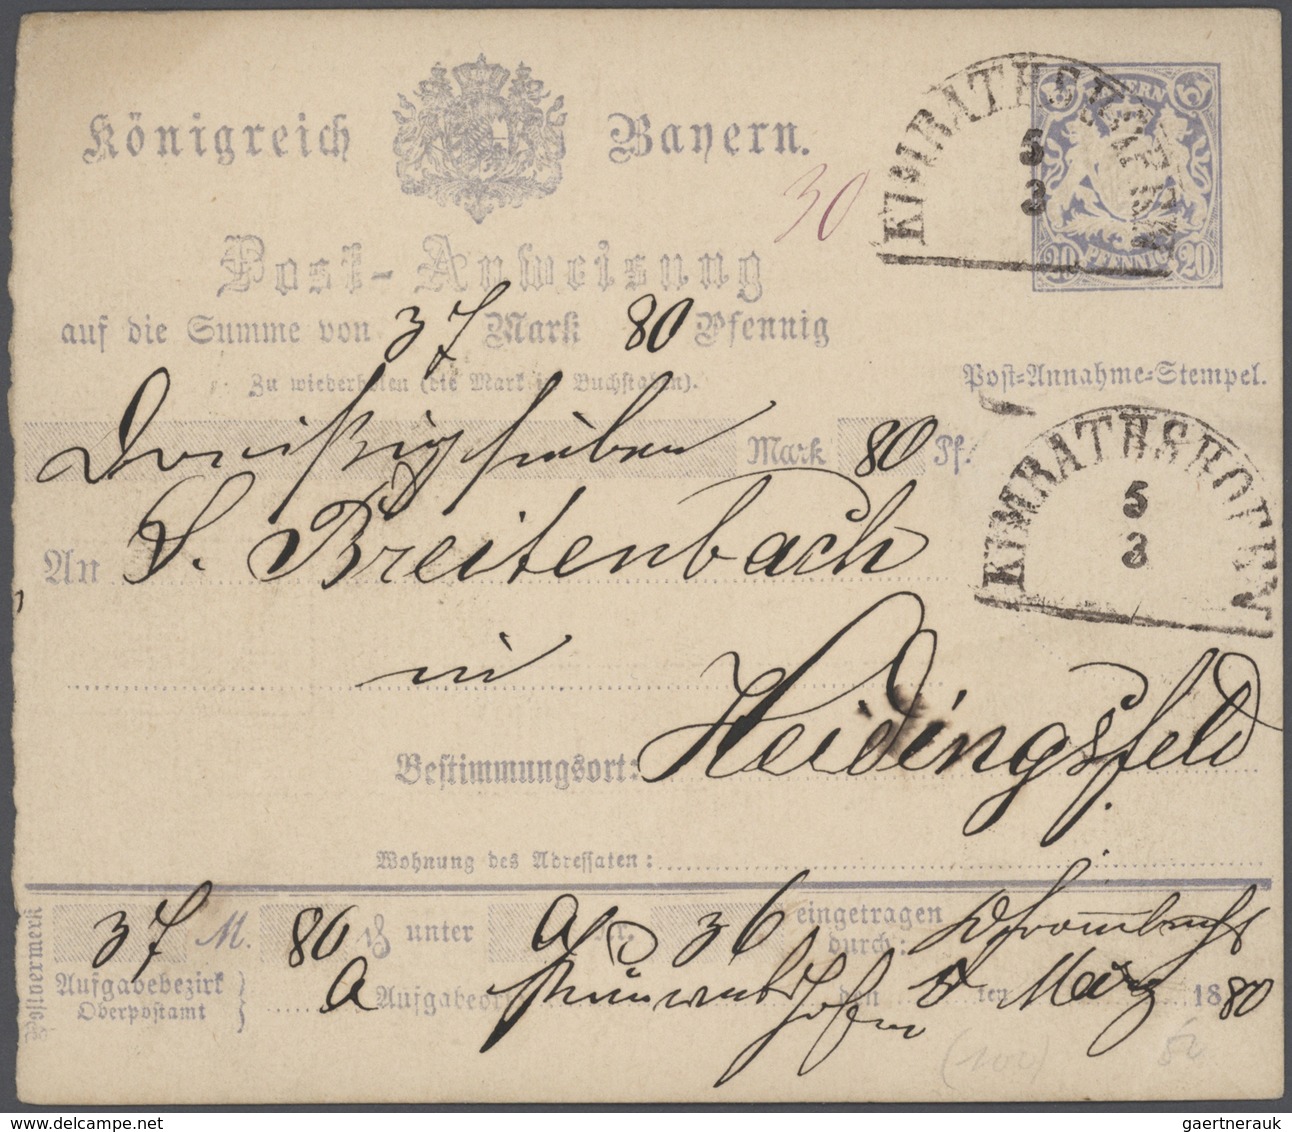 Königreich Bayern.
KIMRATHSHOFEN
5
3
BAYERN
20 PFENNIG 20
30
Post-Anweisung
auf die Summe von 37 Mark 80 Pfennig
Zu wiederholen (die Mark in Buchstaben).
Post-Annahme-Stempel.
Dreißigsieben Mark 80 Pf.
KIMRATHSHOFEN
5
3
An S. Breitenbach
in
Bestimmungsort: Heidingsfeld
Wohnung des Adressaten:
Postvermerk
37 M. 80 ₰ unter A Nr. 36 eingetragen
durch:
Aufgabebezirk
Oberpostamt
A Aufgabeort Kimrathshofen den 5 ten März 1880
(100)
gaertnerauk